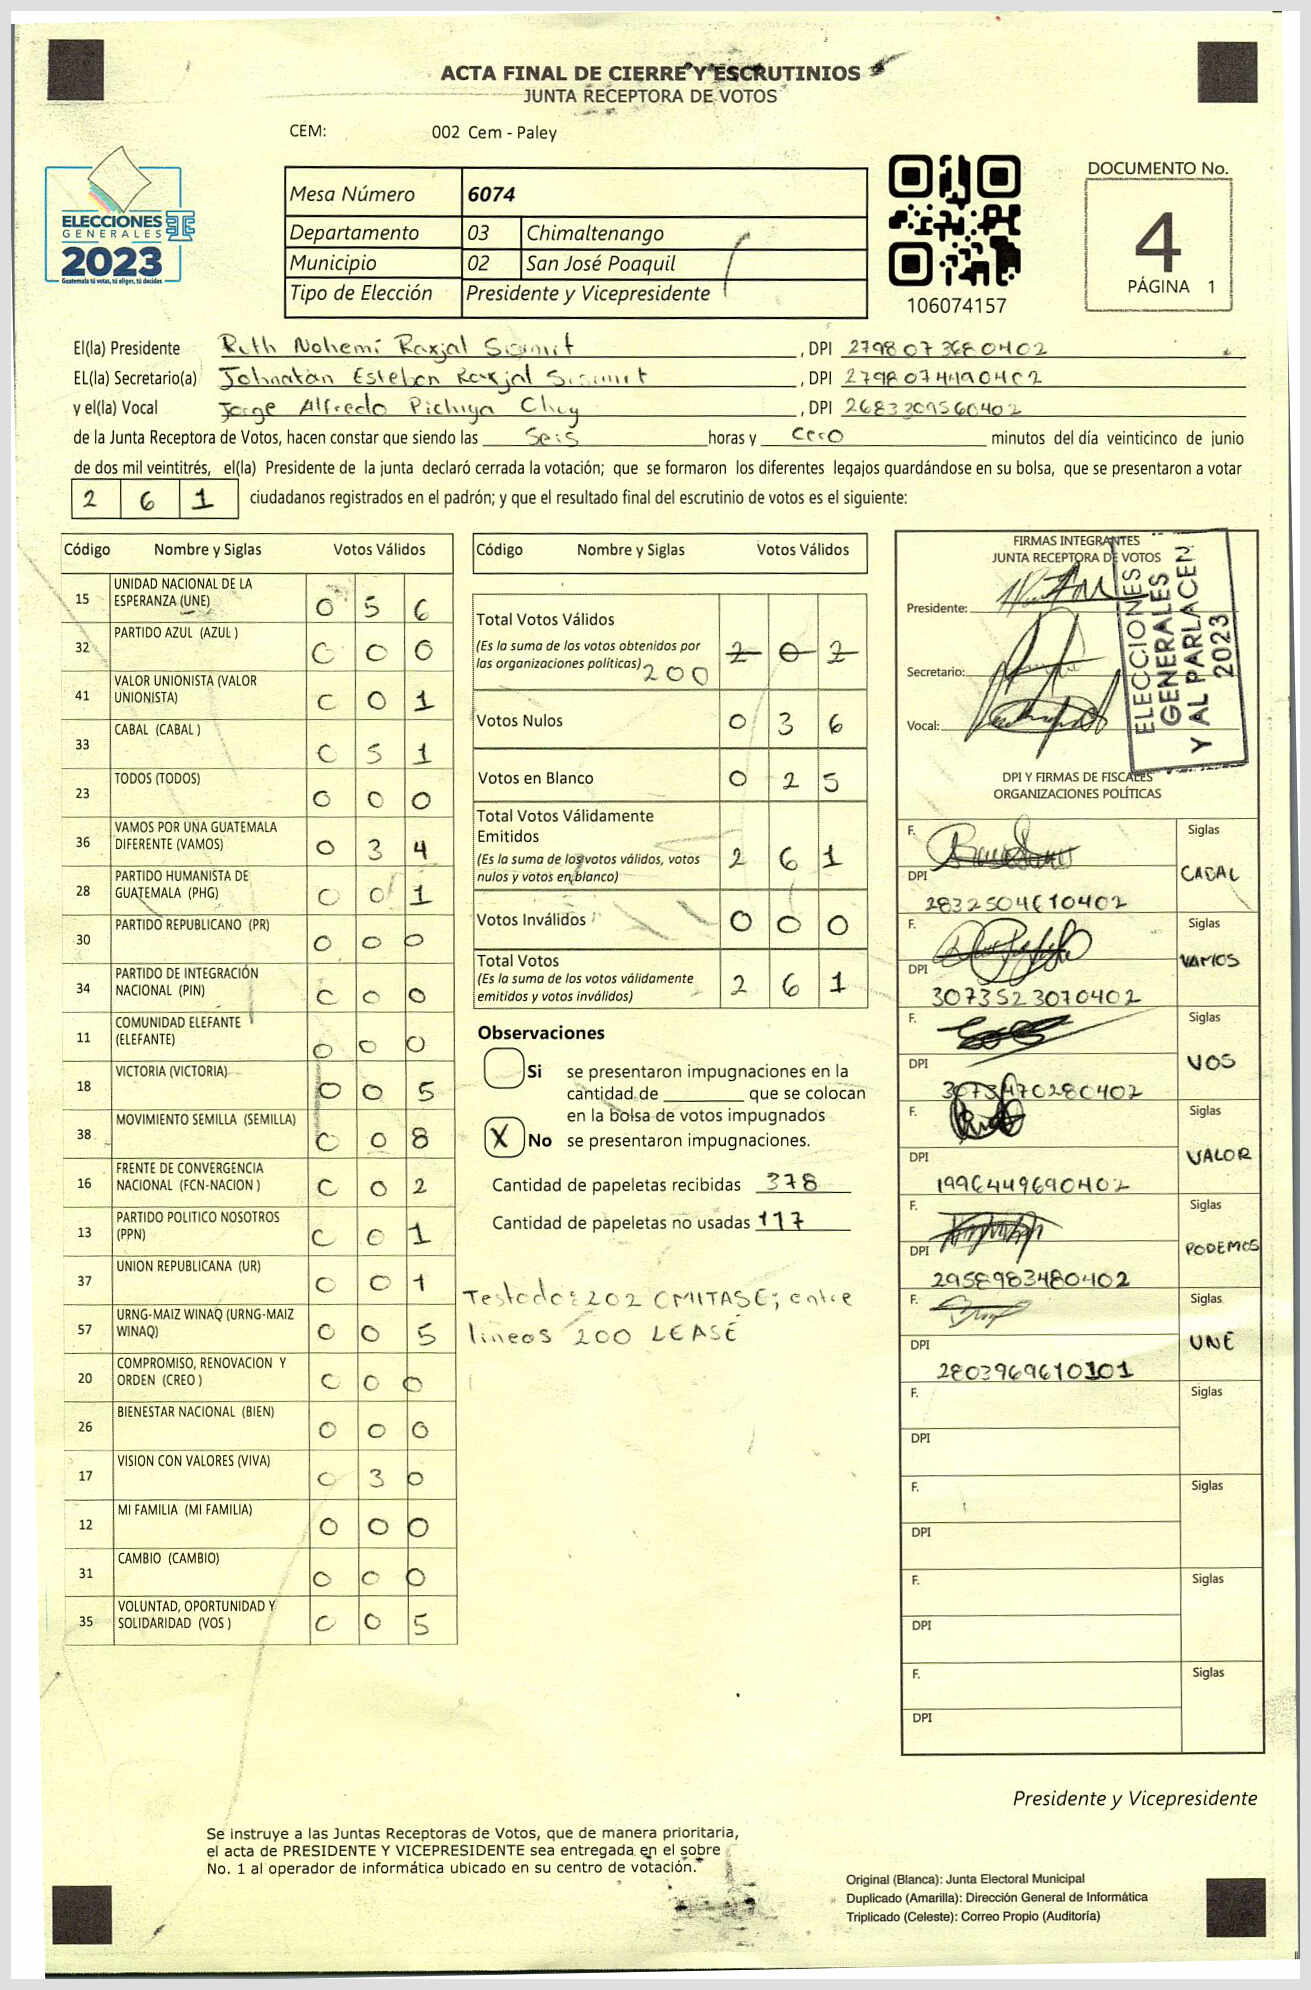 ACTA FINAL DE CIERRE Y ESCRUTINIOS
JUNTA RECEPTORA DE VOTOS
CEM: 002 Cem - Paley
ELECCIONES
GENERALES
2023
Guatemala tú votas, tú eliges, tú decides
Mesa Número 6074
Departamento 03 Chimaltenango
Municipio 02 San José Poaquil
Tipo de Elección Presidente y Vicepresidente
106074157
DOCUMENTO No.
4
PÁGINA 1
El(la) Presidente Ruth Nohemí Raxjal Sisimit, DPI
EL(la) Secretario(a) Johnatán Esteban Raxjal Sisimit, DPI
y el(la) Vocal Jorge Alfredo Pichiya Choy, DPI
de la Junta Receptora de Votos, hacen constar que siendo las Seis horas y cero minutos del día veinticinco de junio
de dos mil veintitrés, el(la) Presidente de la junta declaró cerrada la votación; que se formaron los diferentes legajos guardándose en su bolsa, que se presentaron a votar
2 6 1 ciudadanos registrados en el padrón; y que el resultado final del escrutinio de votos es el siguiente:
Código Nombre y Siglas Votos Válidos
15 UNIDAD NACIONAL DE LA ESPERANZA (UNE) 0 5 6
32 PARTIDO AZUL (AZUL ) 0 0 0
41 VALOR UNIONISTA (VALOR UNIONISTA) 0 0 1
33 CABAL (CABAL ) 0 5 1
23 TODOS (TODOS) 0 0 0
36 VAMOS POR UNA GUATEMALA DIFERENTE (VAMOS) 0 3 4
28 PARTIDO HUMANISTA DE GUATEMALA (PHG) 0 0 1
30 PARTIDO REPUBLICANO (PR) 0 0 0
34 PARTIDO DE INTEGRACIÓN NACIONAL (PIN) 0 0 0
11 COMUNIDAD ELEFANTE (ELEFANTE) 0 0 0
18 VICTORIA (VICTORIA) 0 0 5
38 MOVIMIENTO SEMILLA (SEMILLA) 0 0 8
16 FRENTE DE CONVERGENCIA NACIONAL (FCN-NACION ) 0 0 2
13 PARTIDO POLITICO NOSOTROS (PPN) 0 0 1
37 UNION REPUBLICANA (UR) 0 0 1
57 URNG-MAIZ WINAQ (URNG-MAIZ WINAQ) 0 0 5
20 COMPROMISO, RENOVACION Y ORDEN (CREO ) 0 0 0
26 BIENESTAR NACIONAL (BIEN) 0 0 0
17 VISION CON VALORES (VIVA) 0 3 0
12 MI FAMILIA (MI FAMILIA) 0 0 0
31 CAMBIO (CAMBIO) 0 0 0
35 VOLUNTAD, OPORTUNIDAD Y SOLIDARIDAD (VOS ) 0 0 5
Código Nombre y Siglas Votos Válidos
Total Votos Válidos 2 0 2
(Es la suma de los votos obtenidos por
las organizaciones políticas) 200
Votos Nulos 0 3 6
Votos en Blanco 0 2 5
Total Votos Válidamente
Emitidos 2 6 1
(Es la suma de los votos válidos, votos
nulos y votos en blanco)
Votos Inválidos 0 0 0
Total Votos 2 6 1
(Es la suma de los votos válidamente
emitidos y votos inválidos)
Observaciones
Si se presentaron impugnaciones en la
cantidad de que se colocan
en la bolsa de votos impugnados
X No se presentaron impugnaciones.
Cantidad de papeletas recibidas 378
Cantidad de papeletas no usadas 117
Testado: 202 OMITASE; entre
lineas 200 LEASE
FIRMAS INTEGRANTES
JUNTA RECEPTORA DE VOTOS
Presidente:
Secretario:
Vocal:
ELECCIONES
GENERALES
Y AL PARLACEN
2023
DPI Y FIRMAS DE FISCALES
ORGANIZACIONES POLÍTICAS
F. Siglas
DPI 2832504610402 CABAL
F. Siglas
DPI 3073523070402 VAMOS
F. Siglas
DPI 3073470280402 VOS
F. Siglas
DPI 1996449690402 VALOR
F. Siglas
DPI 2958983480402 PODEMOS
F. Siglas
DPI 2803969610101 UNE
F. Siglas
DPI
F. Siglas
DPI
F. Siglas
DPI
F. Siglas
DPI
Presidente y Vicepresidente
Se instruye a las Juntas Receptoras de Votos, que de manera prioritaria,
el acta de PRESIDENTE Y VICEPRESIDENTE sea entregada en el sobre
No. 1 al operador de informática ubicado en su centro de votación.
Original (Blanca): Junta Electoral Municipal
Duplicado (Amarilla): Dirección General de Informática
Triplicado (Celeste): Correo Propio (Auditoría)